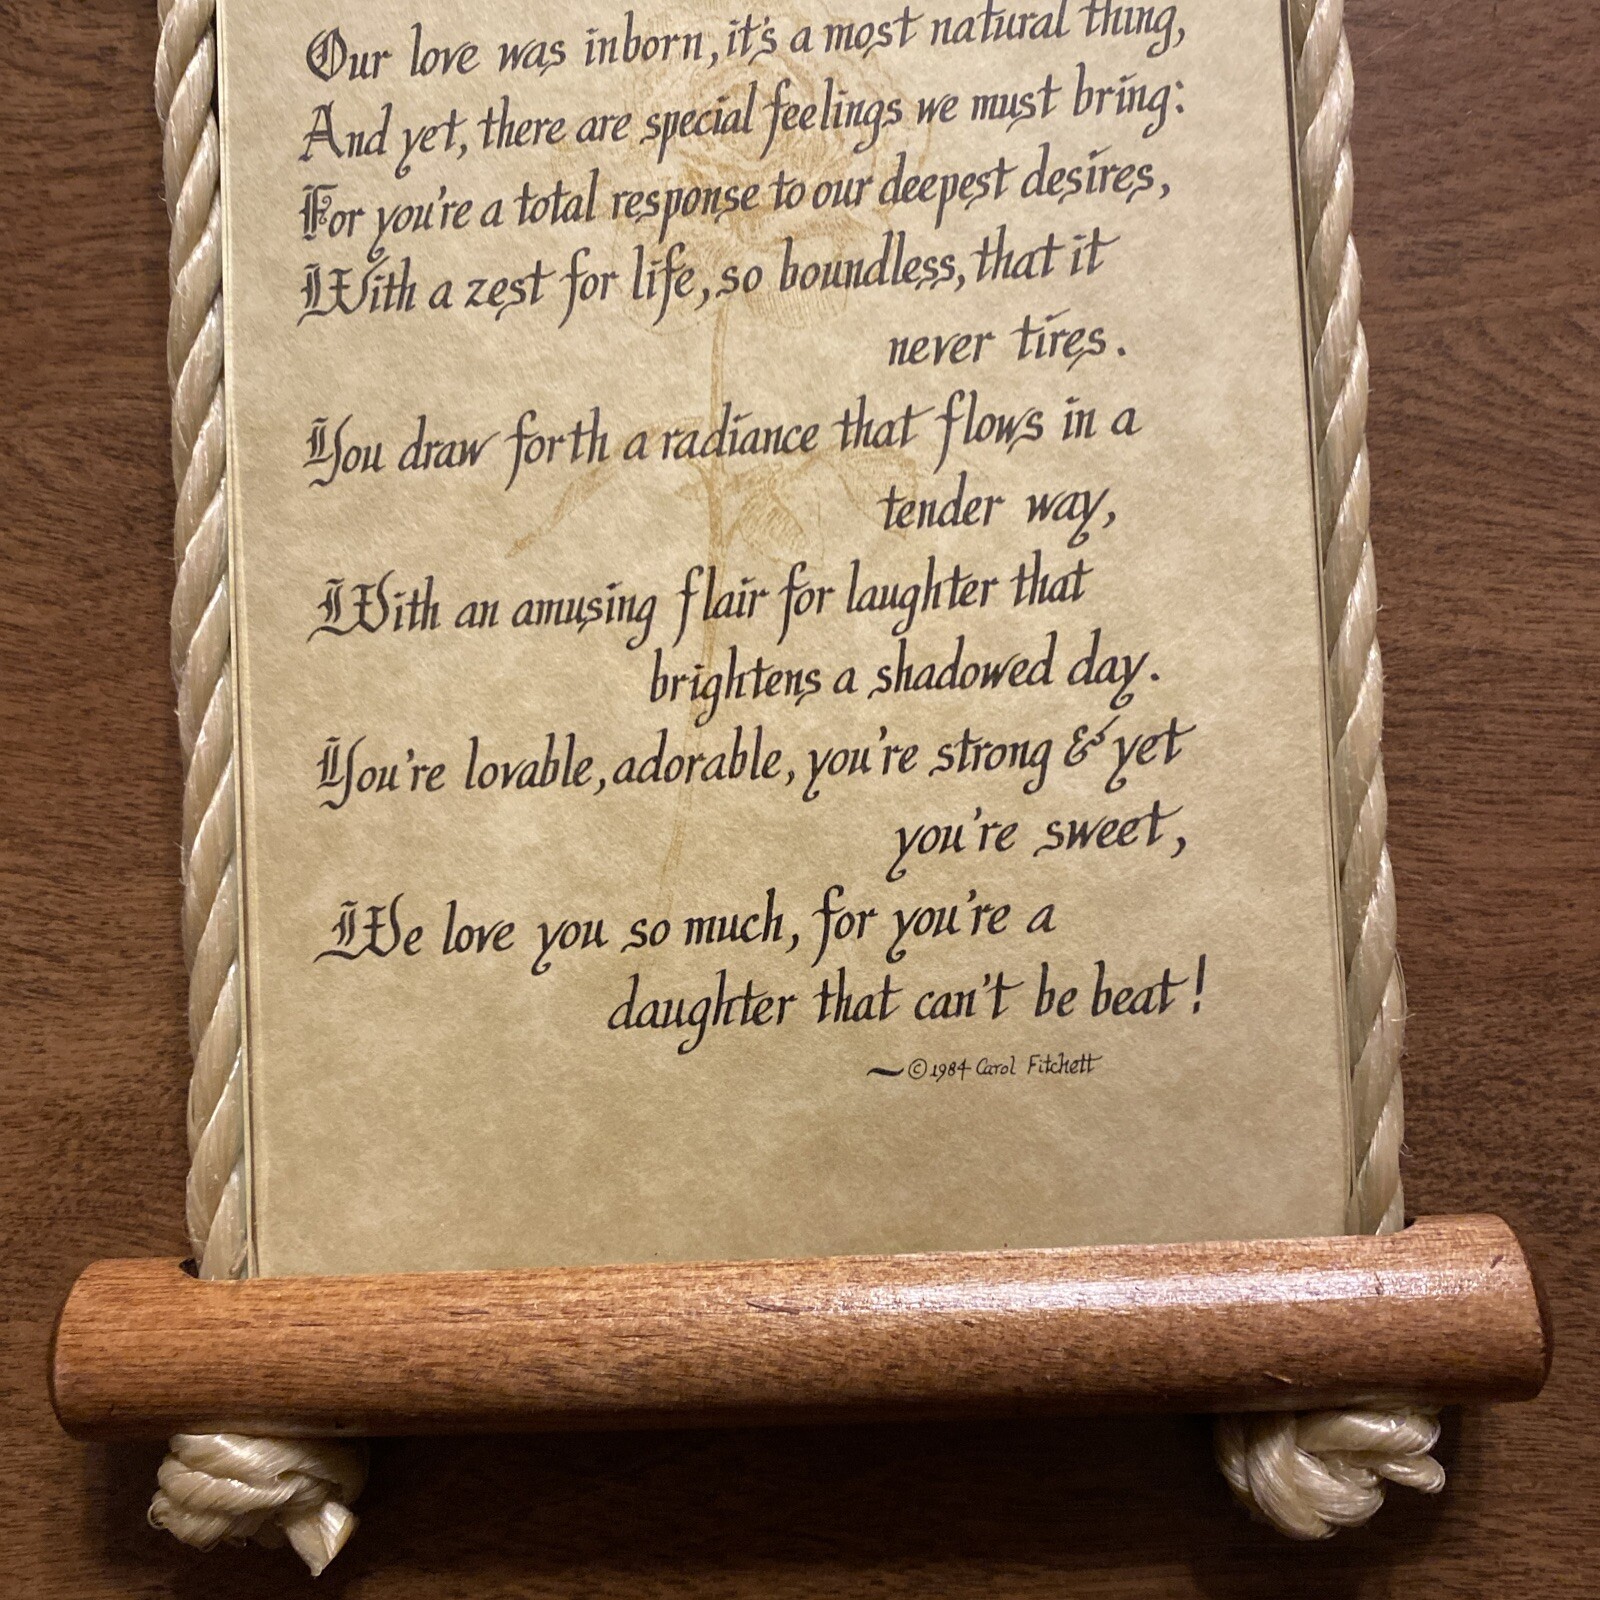 Our love was inborn, it's a most natural thing,
And yet, there are special feelings we must bring:
For you're a total response to our deepest desires,
With a zest for life, so boundless, that it
never tires.
You draw forth a radiance that flows in a
tender way,
With an amusing flair for laughter that
brightens a shadowed day.
You're lovable, adorable, you're strong & yet
you're sweet,
We love you so much, for you're a
daughter that can't be beat!
~©1984 Carol Fitchett